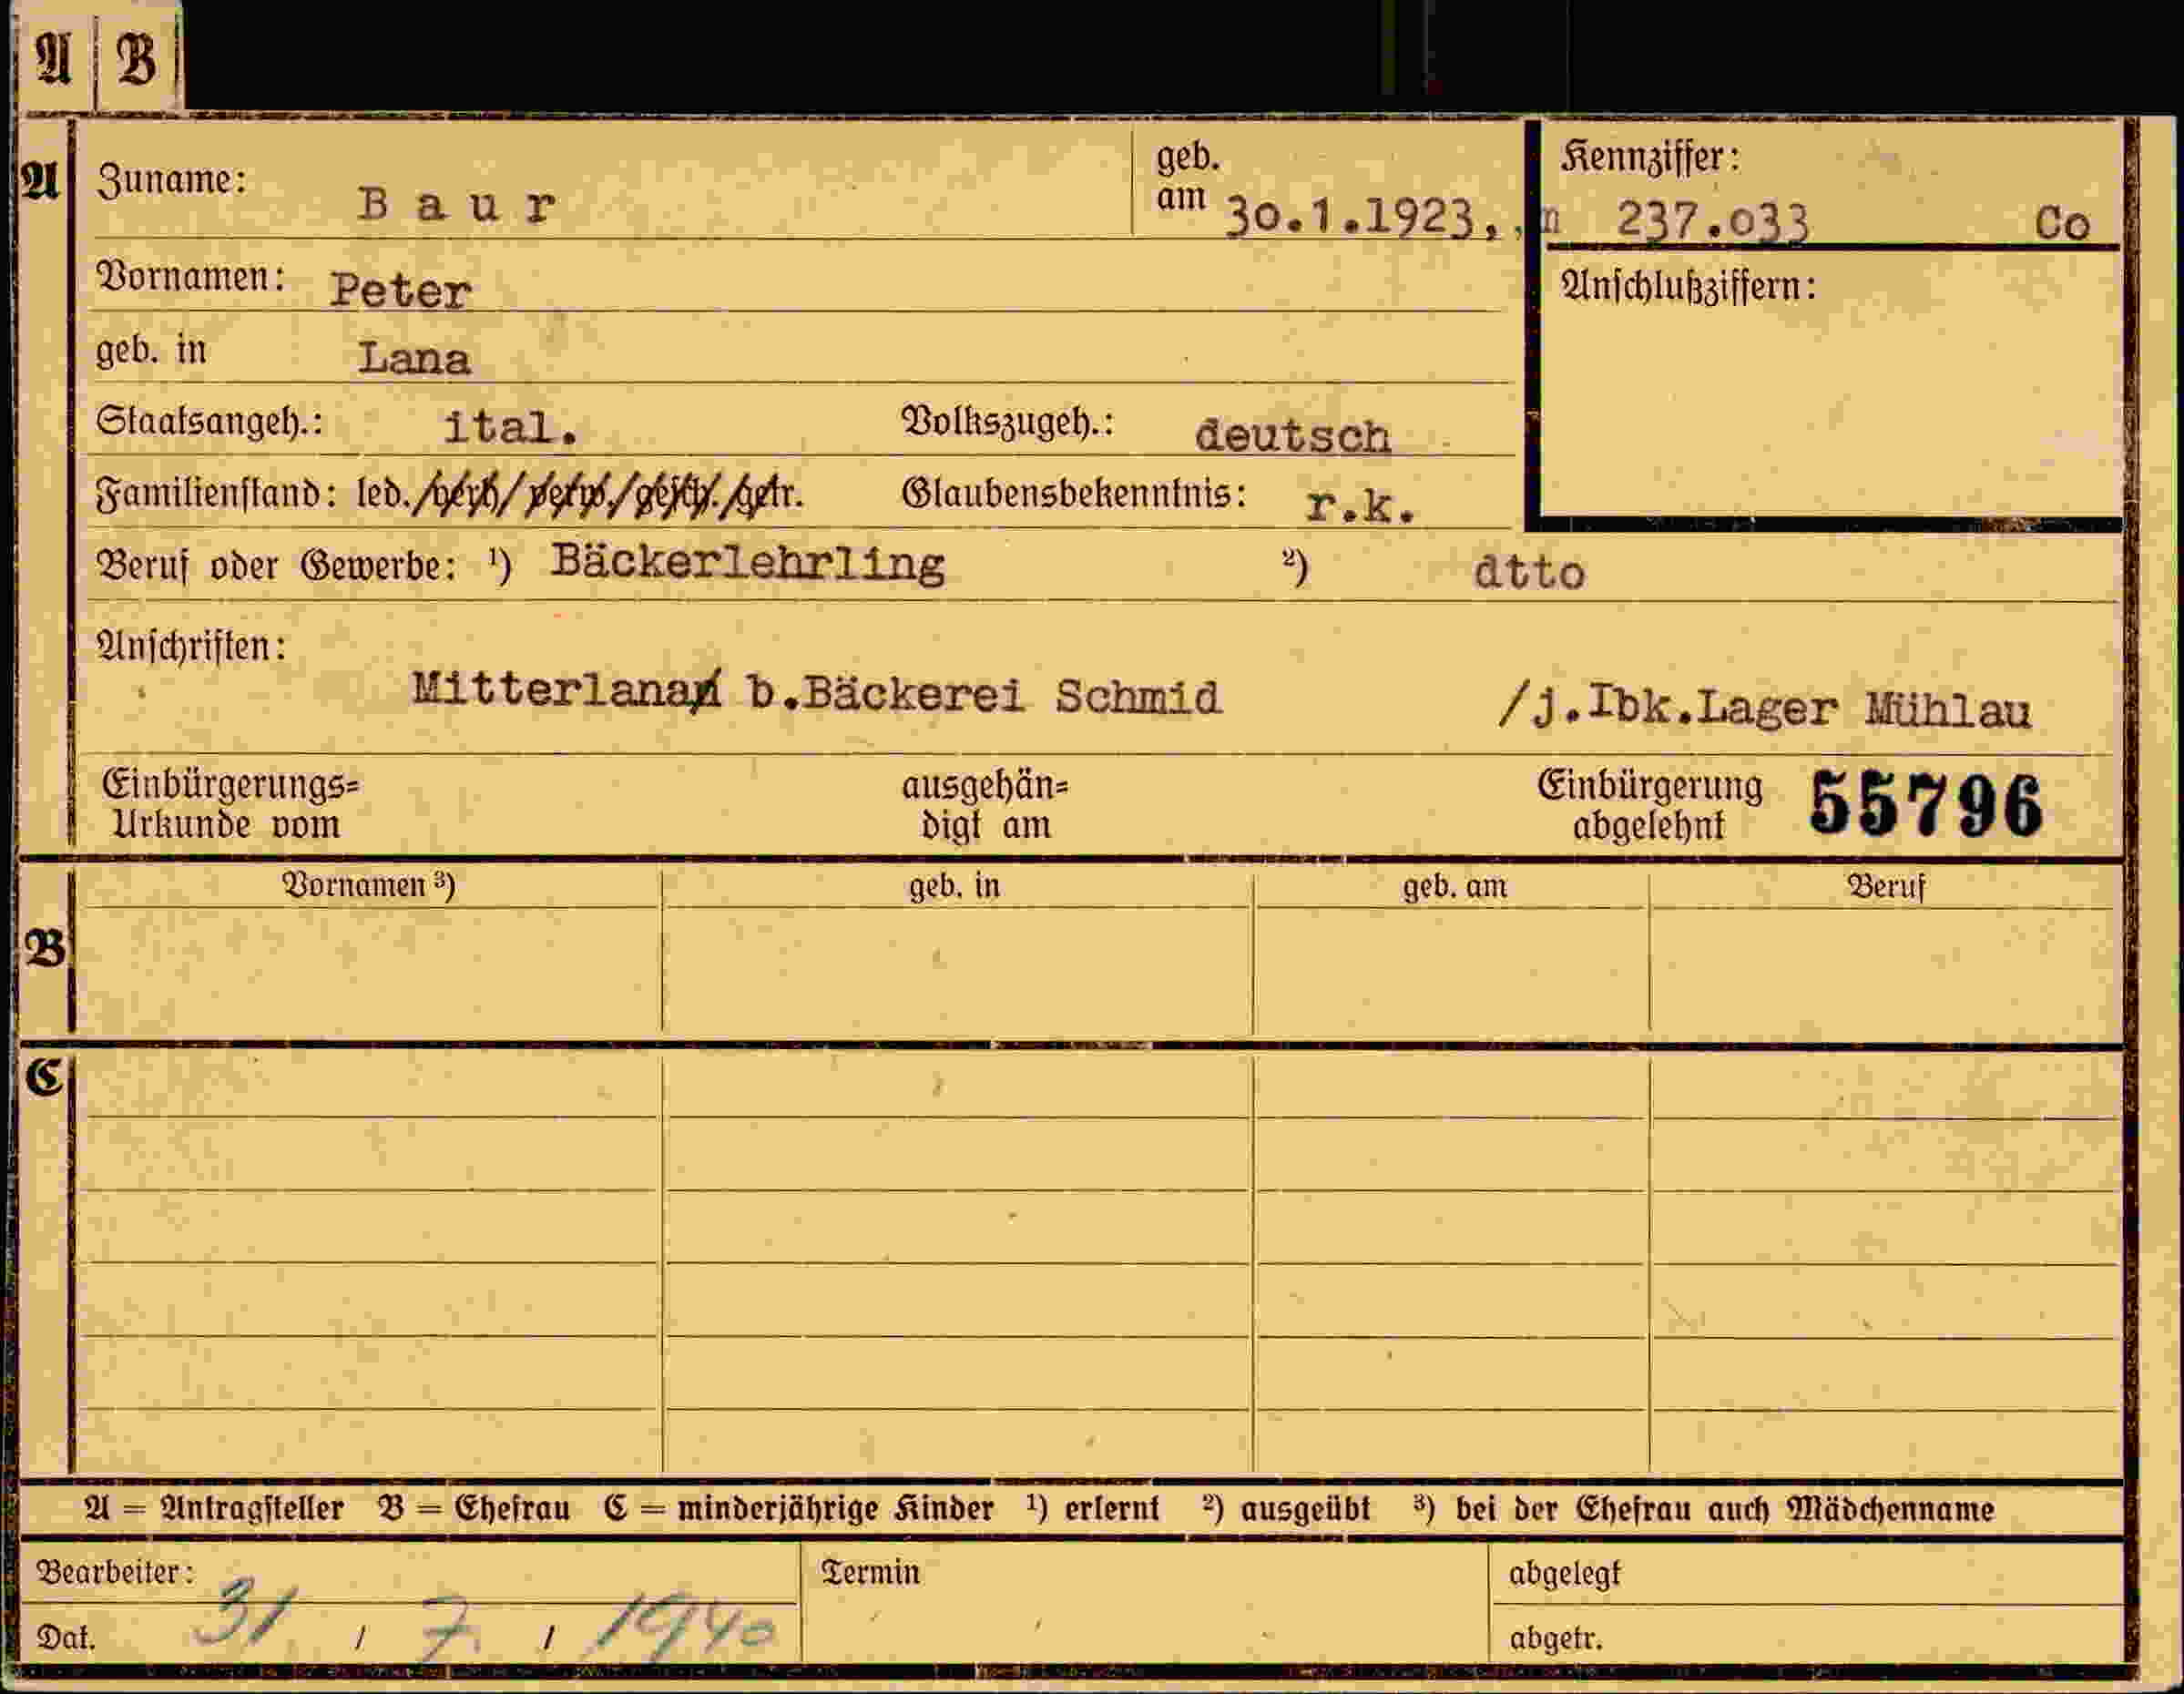 A B
A Zuname: Baur geb. am 30.1.1923,
Kennziffer: 237.033 Co
Vornamen: Peter
Anschlußziffern:
geb. in Lana
Staatsangeh.: ital. Volkszugeh.: deutsch
Familienstand: led./verh/verw./gesch./getr. Glaubensbekenntnis: r.k.
Beruf oder Gewerbe: ¹) Bäckerlehrling ²) dtto
Anschriften:
Mitterlana b.Bäckerei Schmid /j.Ibk.Lager Mühlau
Einbürgerungs= ausgehän= Einbürgerung 55796
Urkunde vom digt am abgelehnt
Vornamen ³) geb. in geb. am Beruf
B
C
A = Antragsteller B = Ehefrau C = minderjährige Kinder ¹) erlernt ²) ausgeübt ³) bei der Ehefrau auch Mädchenname
Bearbeiter: Termin abgelegt
Dat. 31 / 7. / 1940 abgetr.